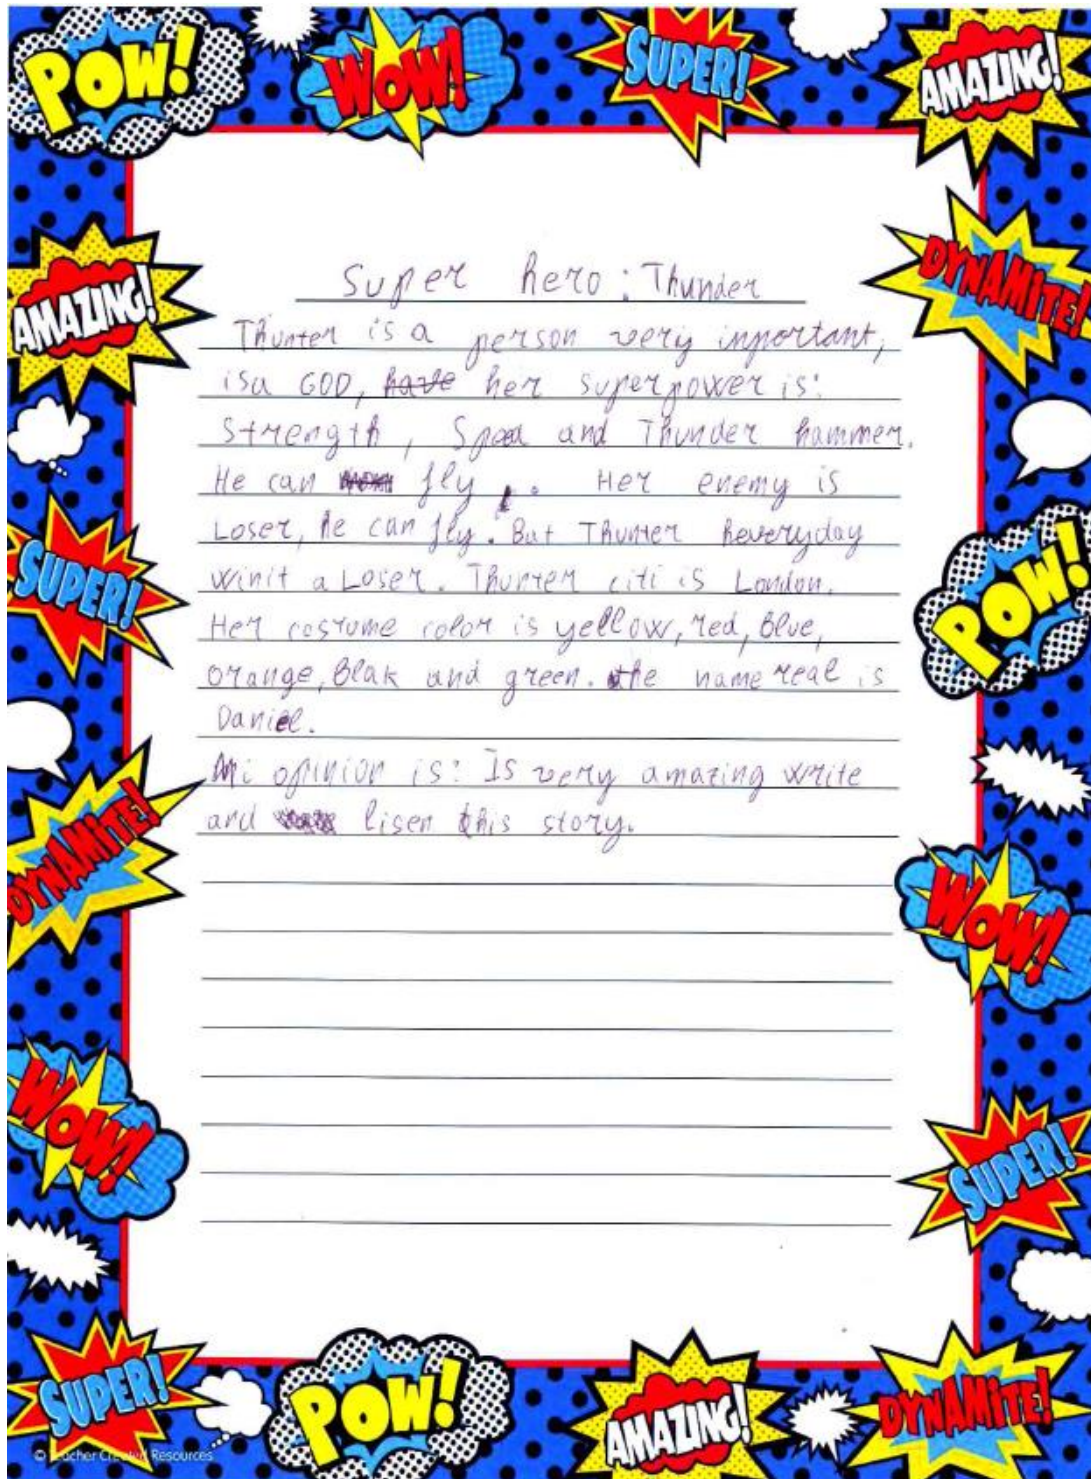 POW! WOW! SUPER! AMAZING!
AMAZING! DYNAMITE!
Super hero: Thunder
Thunter is a person very inportant,
isa GOD, have her superpower is:
Strength, Speed and Thunder hammer.
He can fly. Her enemy is
Loser, he can fly. But Thunter heveryday
winit a Loser. Thunter citi is London.
Her costume color is yellow, red, Blue,
orange, Blak and green. the name real is
Daniel.
Mi opinion is: Is very amazing write
and lisen this story.
SUPER! POW!
DYNAMITE! WOW!
WOW! SUPER!
SUPER! POW! AMAZING! DYNAMITE!
© Teacher Created Resources